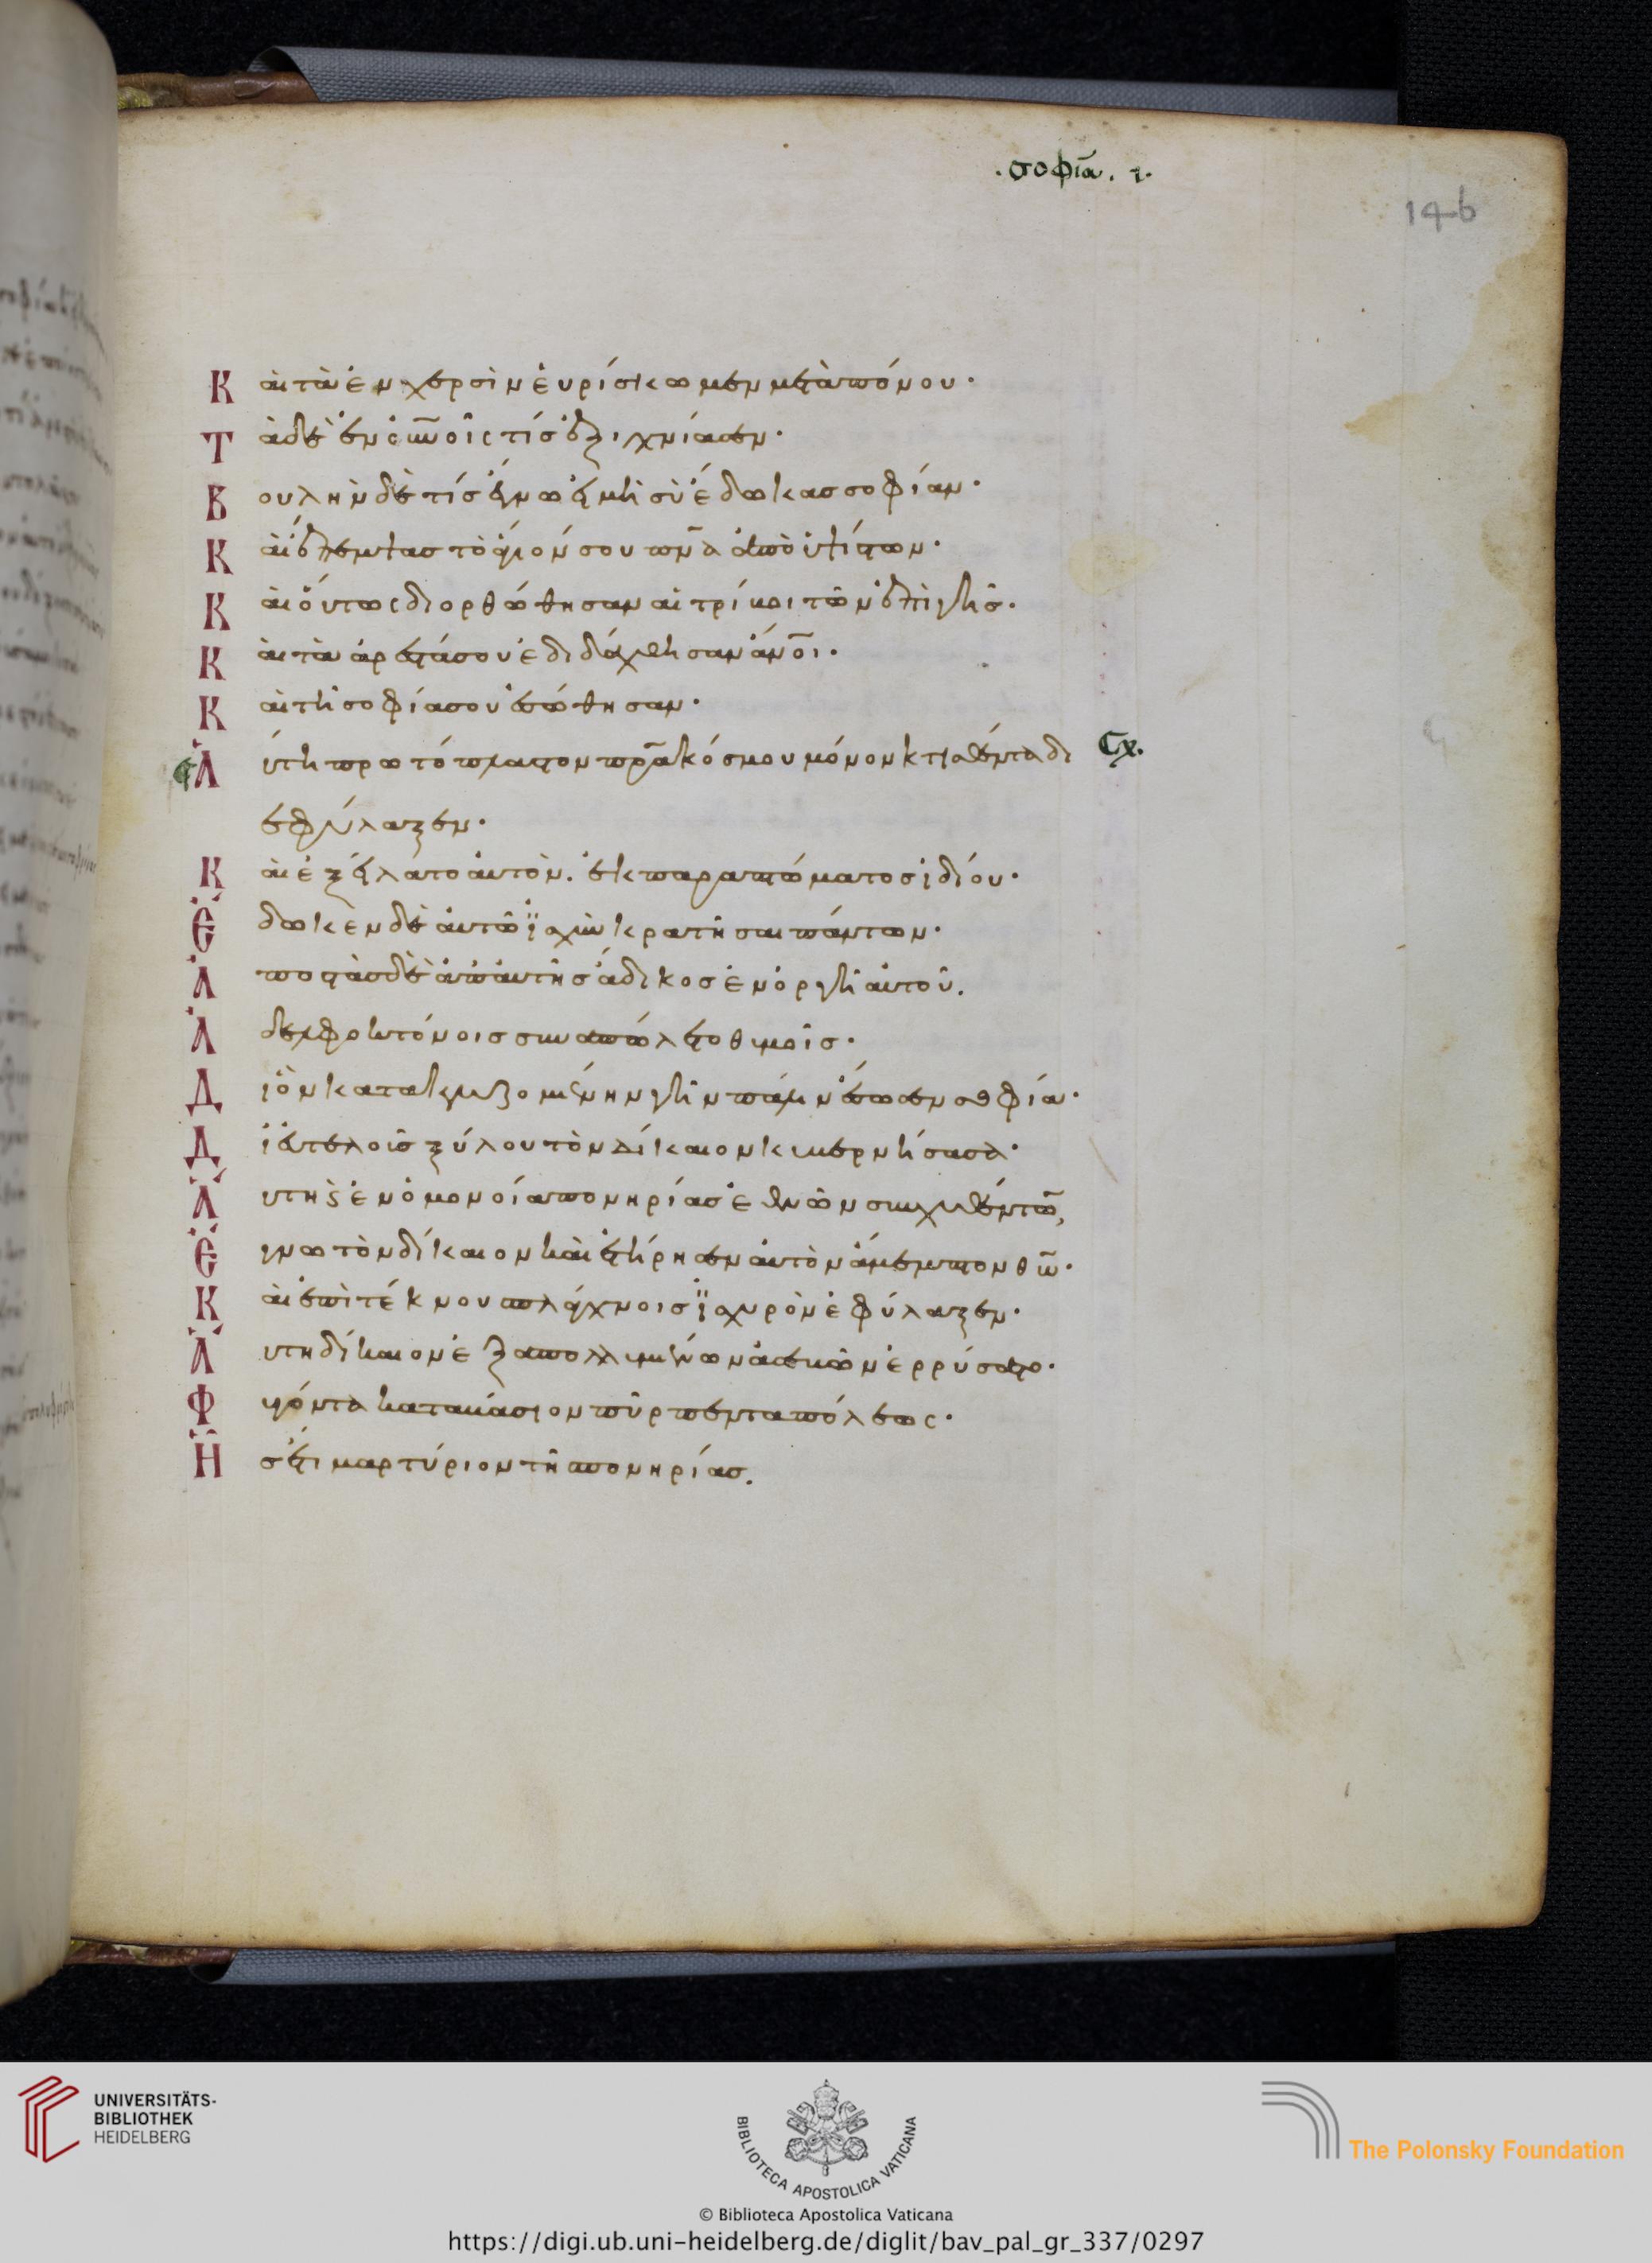 .σοφία. ι.
146
Καὶ τὰ ἐν χερσὶν ἑυρίσκωμεν μετὰ πόνου·
Τὰ δὲ ἐν οὐνοῖς τίς ἐξιχνίασεν·
Βουλὴν δὲ τίς ἔγνω εἰ μὴ σὺ ἔδωκας σοφίαν·
Καὶ ἔπεμψας τὸ ἅγιόν σου πνα ἀπὸ ὑψίστων·
Καὶ ὅυτως διορθώθησαν αἱ τρίβοι τῶν ἐπὶ γῆς·
Καὶ τὰ ἀρεστά σου ἐδιδάχθησαν ἄνοι·
Καὶ τῆ σοφία σου ἐσώθησαν·
Αὕτη πρωτόπλαστον πρα κόσμου μόνον κτισθέντα δι Σχ.
εφύλαξεν·
Καὶ ἐξείλατο ἀυτὸν. ἐκ παραπτώματος ἰδίου·
Ἔδωκὲν δὲ ἀυτῶ ϊσχὺν κρατῆσαι πάντων·
Ἀποστὰς δὲ ἀπ' ἀυτῆς ἄδικος ἐν ὀργῆ ἀυτοῦ.
Ἀδελφοκτόνοις συναπώλετο θυμοῖς·
Διὸν κατακλυζομένην γῆν πάλιν ἔσωσεν σοφία·
Διευτελοῦς ξύλου τὸν δίκαιον κυβερνήσασα·
Αὕτη καὶ ἐν ὁμονοία πονηρίας ἐθνῶν συγχυθέντων,
Ἔγνω τὸν δίκαιον καὶ ἐτήρησεν ἀυτὸν ἄμεμπτον θω·
Καὶ ἐπὶ τέκνου σπλάγχνοις ϊσχυρὸν ἐφύλαξεν·
Αὕτη δίκαιον ἐξαπολλυμένων ἀσεβῶν ἐρρύσατο·
Φυγόντα καταβάσιον πῦρ πενταπόλεως·
Ἧς ἔτι μαρτύριον τῆς πονηρίας.
UNIVERSITÄTS-
BIBLIOTHEK
HEIDELBERG
BIBLIOTECA APOSTOLICA VATICANA
The Polonsky Foundation
© Biblioteca Apostolica Vaticana
https://digi.ub.uni-heidelberg.de/diglit/bav_pal_gr_337/0297